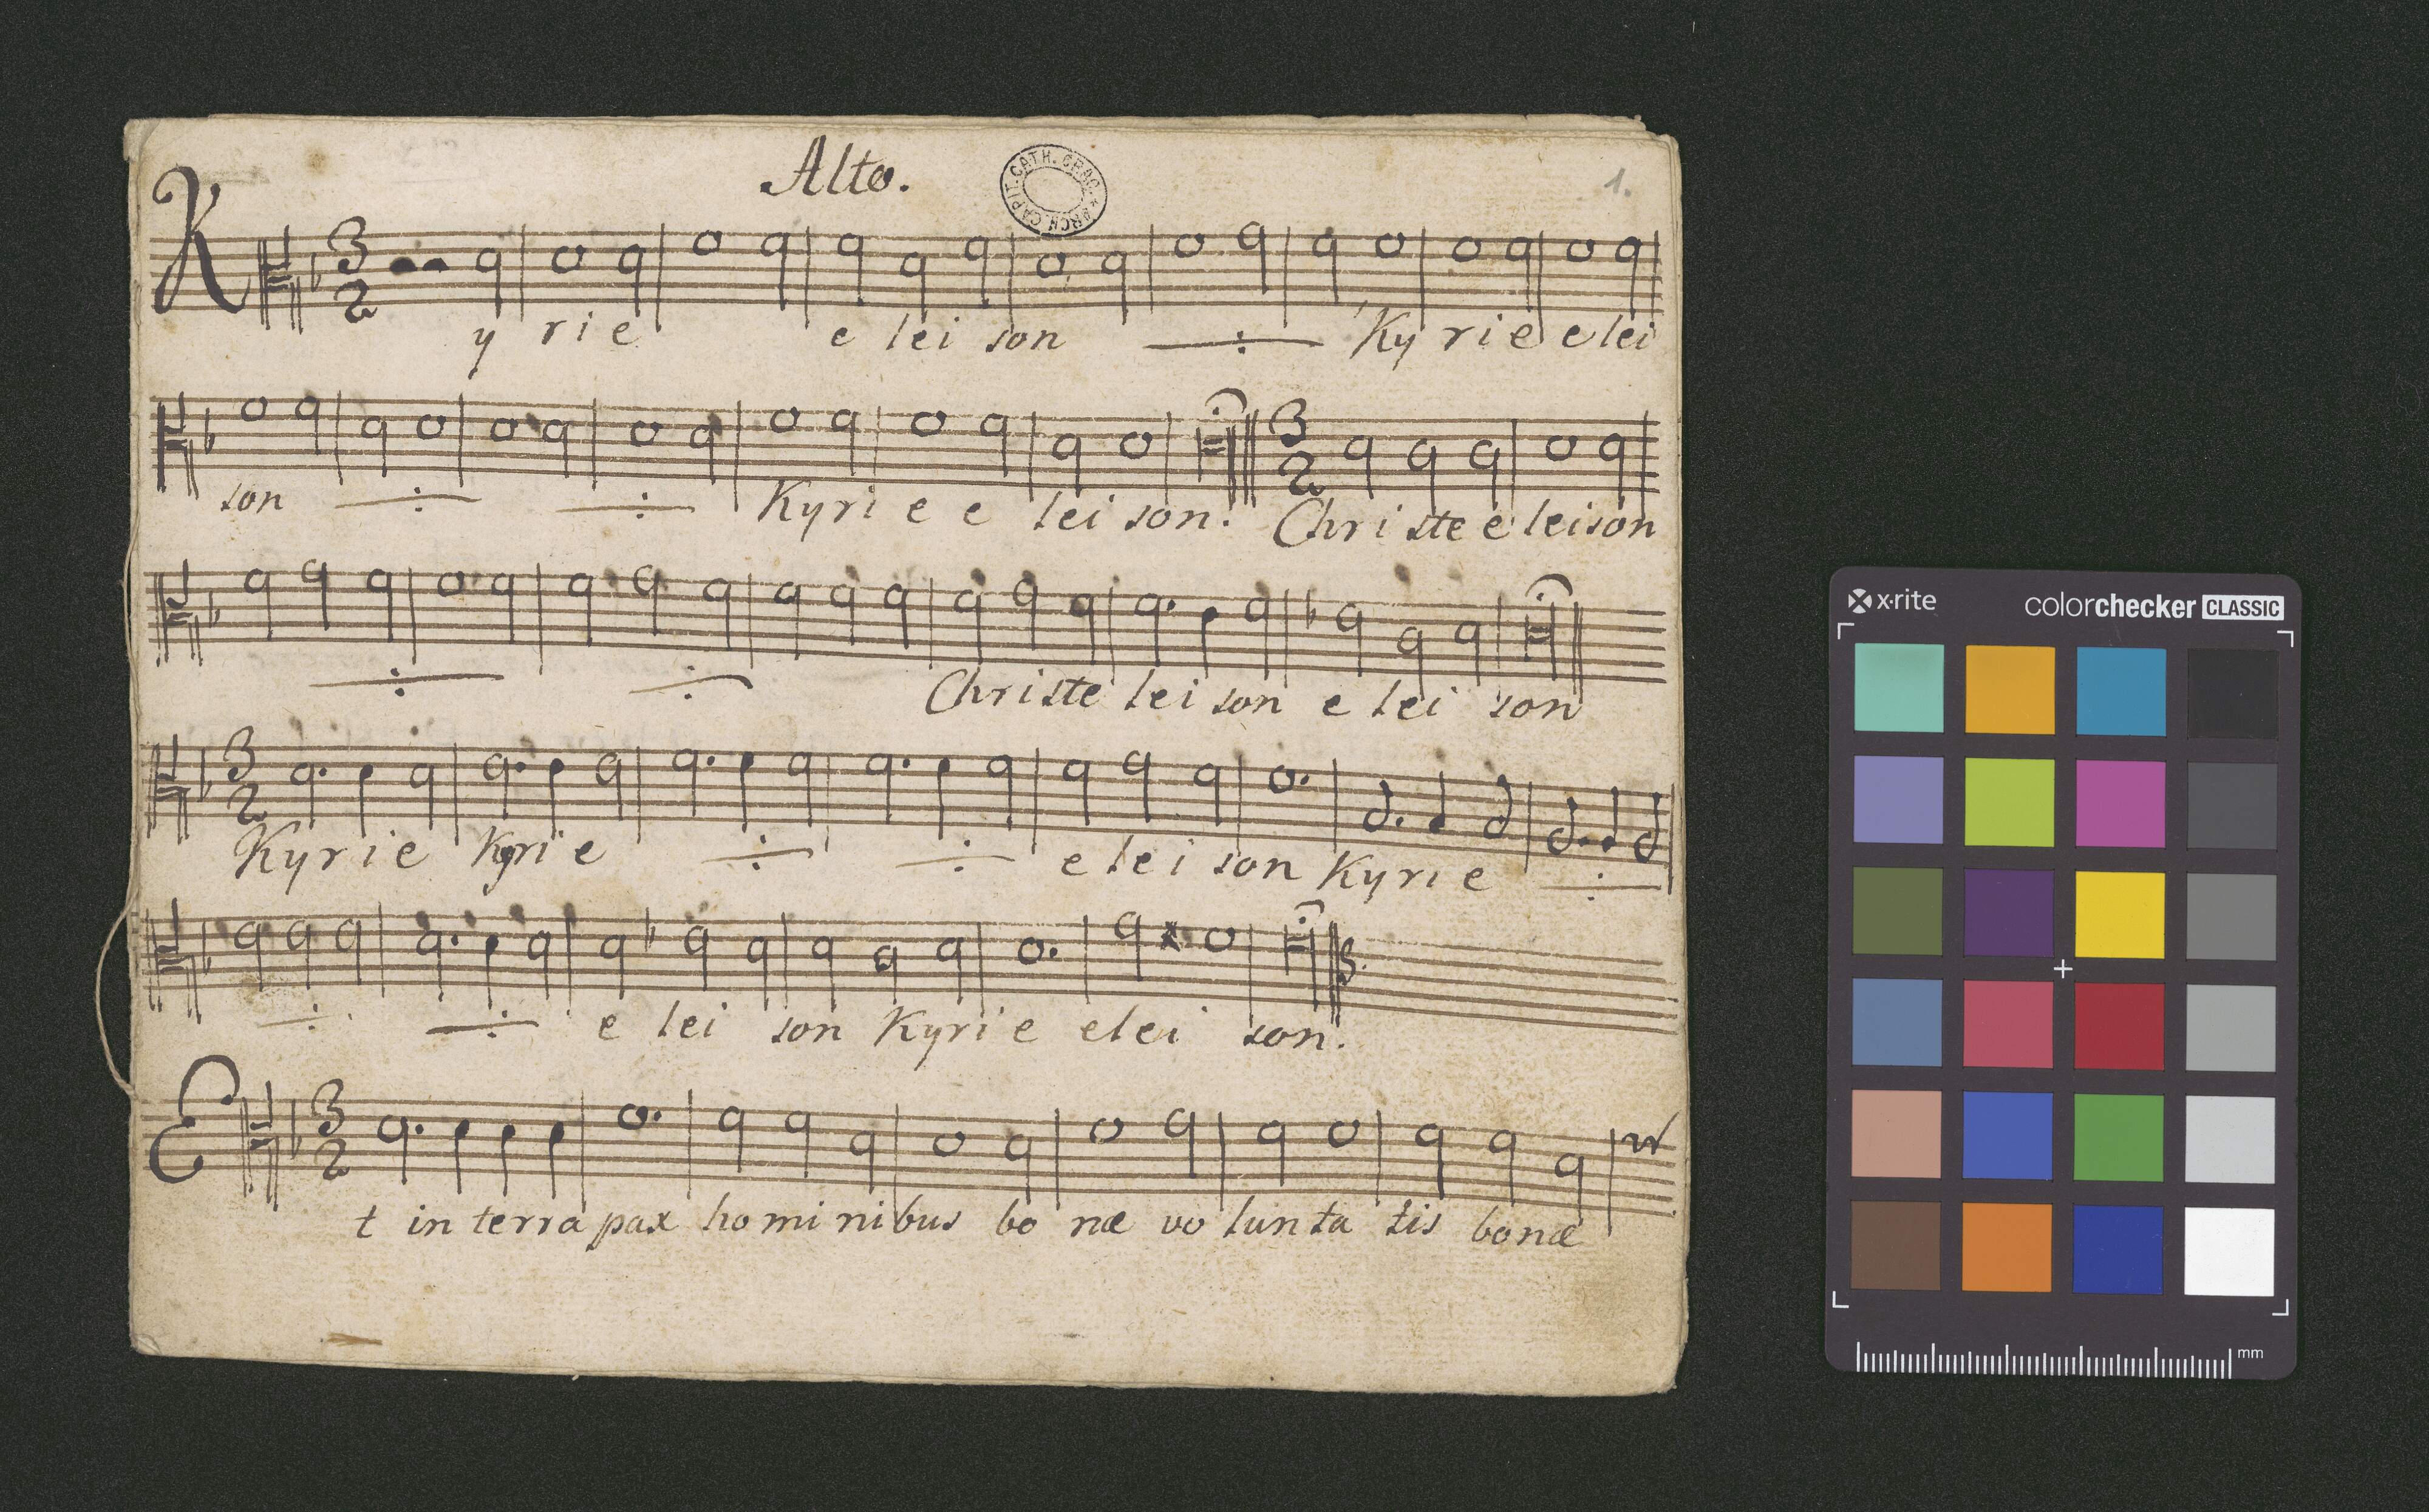 Alto.
ARCH. CAPIT. CATH. GRBC. *
1.
3 2
K y rie e lei son Ky rie e lei
son Kyri e e lei son. Chri ste e leison
3 2
Christe lei son e lei son
3 2
Kyrie Kyrie e lei son Kyri e
e lei son Kyri e elei son.
3 2
E t in terra pax ho mi nibus bo næ vo lun ta tis bonæ
x·rite colorchecker CLASSIC
mm